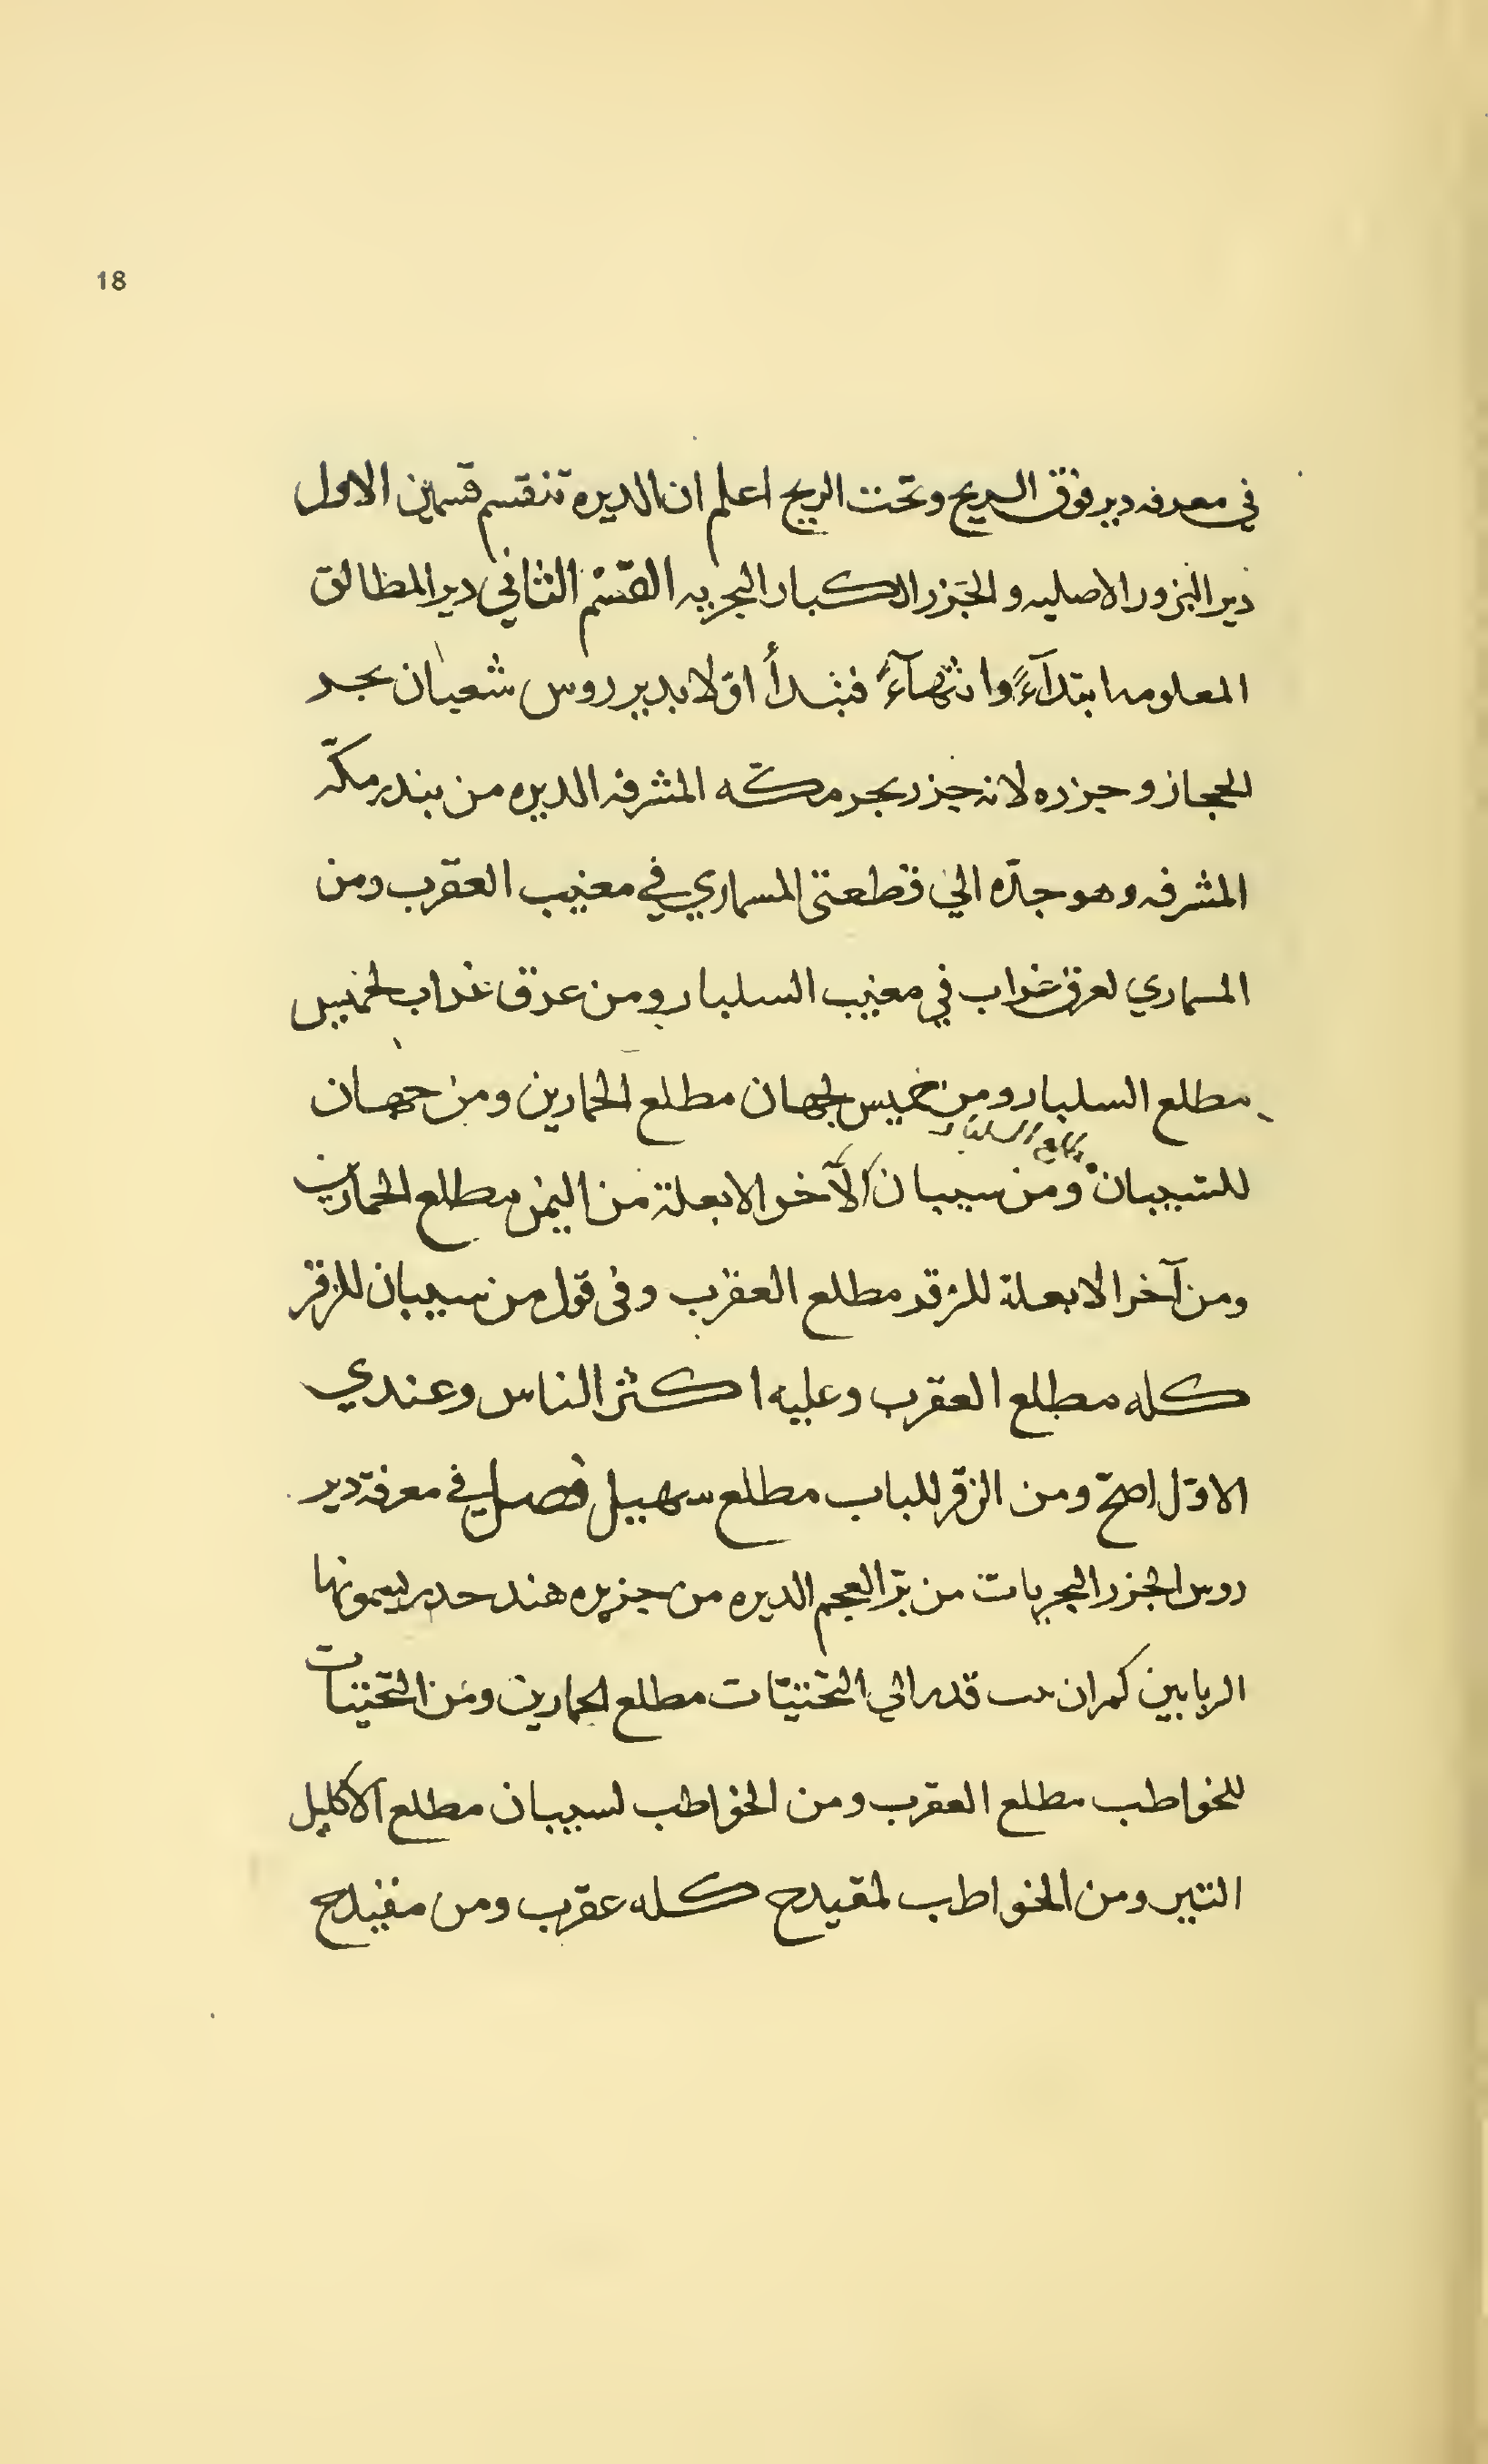 18
في معرفه دير فوق الريح وتحت الريح اعلم ان الديره تنقسم قسمين الاول
دير البرور الاصليه والجزر الكبار البحريه القسم الثاني دير المطالق
المعلومه ابتدآءً وانتهآءً فنبدأ اوّلا بدير روس شعبان بحر
الحجاز وجزره لانه جزر بحر مكّه المشرفه الديره من بندر مكّه
المشرفه وهو جدّه الي قطعتى المسماري في مغيب العقرب ومن
المسماري لعرق غراب في مغيب السلبار ومن عرق غراب لخميس
مطلع السلبار ومن خميس لجهان مطلع الحمارين ومن جهان
مطلع السلبار
للسيبان ومن سيبان لآخر الابعلة من اليمن مطلع الحمارين
ومن آخر الابعلة للزقر مطلع العقرب وفى قول من سيبان للزقر
كله مطلع العقرب وعليه اكثر الناس وعندي
الاوّل اصحّ ومن الزقر للباب مطلع سهيل فصل في معرفة دير
روس الجزر البحريات من برّ العجم الديره من جزيره هند حدر يسمونها
الربابين كمران قدر الي التختيّات مطلع الحمارين ومن التختيات
للخواطب مطلع العقرب ومن الخواطب لسيبان مطلع الاكليل
التير ومن الخواطب لمقيدح كله عقرب ومن مقيدح